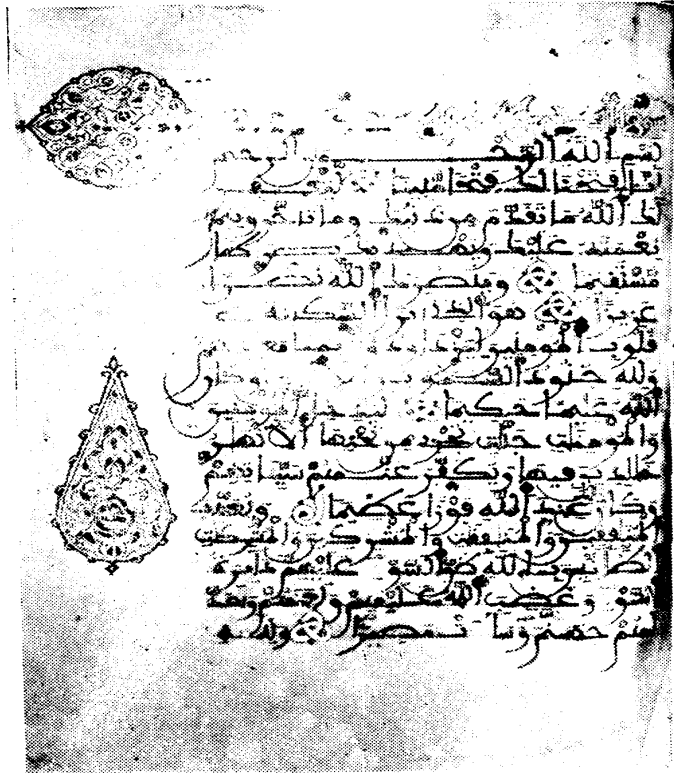 بسم الله الرحمن الرحيم
انا فتحنا لك فتحا مبينا
لك الله ما تقدم من ذنبك وما تأخر ويتم
نعمته عليك ويهديك صرطا
مستقيما وينصرك الله نصرا
عزيزا هو الذي انزل السكينة في
قلوب المومنين ليزدادوا ايمنا مع
ولله جنود السموت وكان
الله عليما حكيما ليدخل المومنين
والمومنت جنت تجري من تحتها الانهر
خلدين فيها ويكفر عنهم سيئاتهم
وكان عند الله فوزا عظيما ويعذب
المنفقين والمنفقت والمشركين والمشركت
الظانين بالله ظن السوء عليهم دائرة
السوء وغضب الله عليهم ولعنهم واعد
لهم جهنم وساءت مصيرا ولله